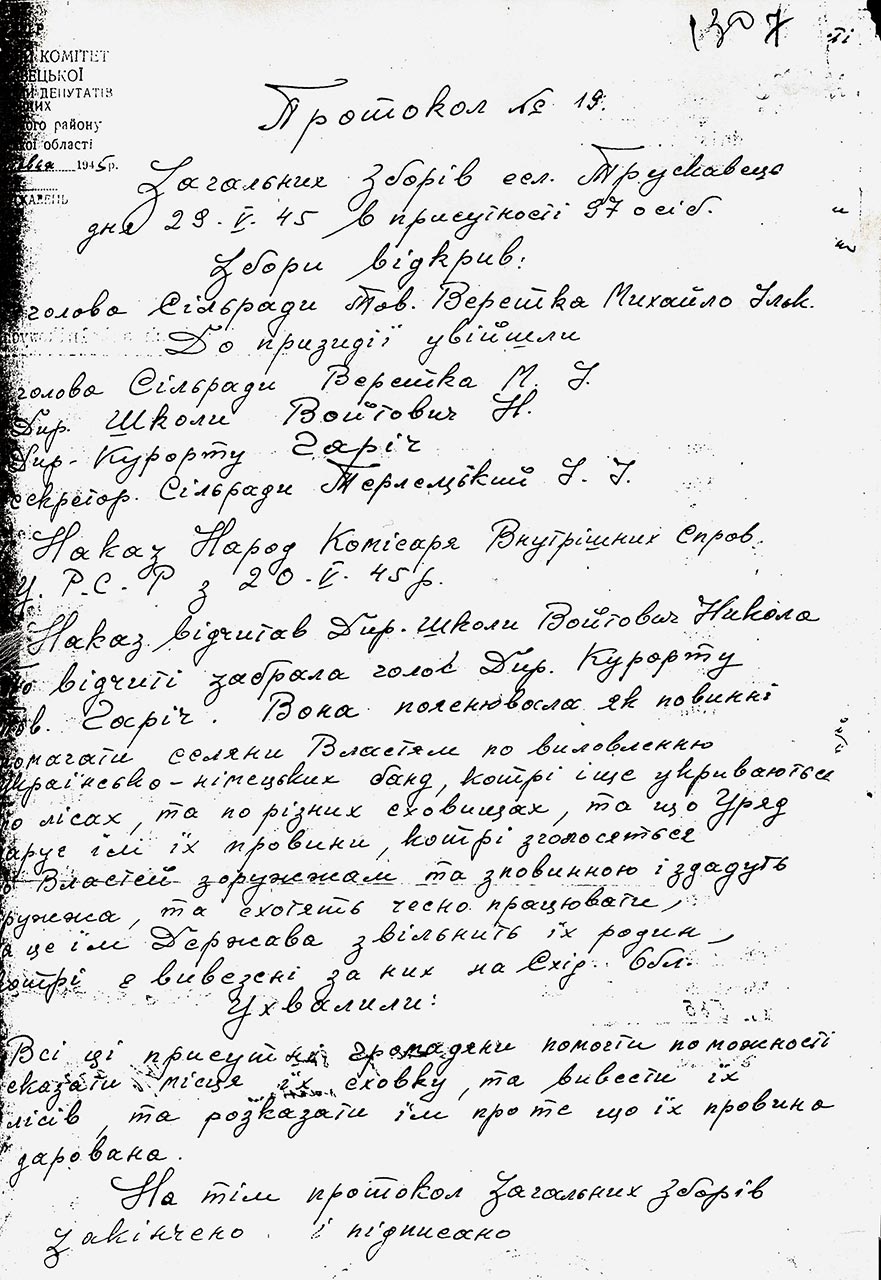 КОМІТЕТ
ДЕПУТАТІВ
ого району
кої області
1945р.
Протокол № 19.
Загальних зборів сел. Трускавець
дня 29. V. 45 в присутності 97 осіб.
Збори відкрив:
голова Сільради тов. Верстка Михайло Ільк.
До призидії увійшли
голова Сільради Верстка М. І.
Дир. Школи Войтович Н.
Дир. Курорту Гаріч
секретар. Сільради Терлецький І. І.
Наказ Народ Комісаря Внутрішних Справ.
У. Р. С. Р з 20. V. 45р.
Наказ відчитав Дир. Школи Войтович Никола
По відчиті забрала голос Дир. Курорту
тов. Гаріч. Вона пояснювала як повинні
помагати селяни Властям по виловленню
українсько-німецьких банд, котрі іще укриваються
по лісах, та по різних сховищах, та що Уряд
дарує їм їх провини, котрі зголосяться
Властей зоружжам та зповинною і здадуть
оружжа, та схотять чесно працювати,
за це їм Держава звільнить їх родин,
котрі є вивезені за них на Схід. Обл.
Ухвалили:
Всі ці присутні громадяни помогти по можності
сказати місця їх сховку, та вивести їх
лісів, та розказати їм про те що їх провина
дарована.
На тім протокол Загальних зборів
закінчено і підписано